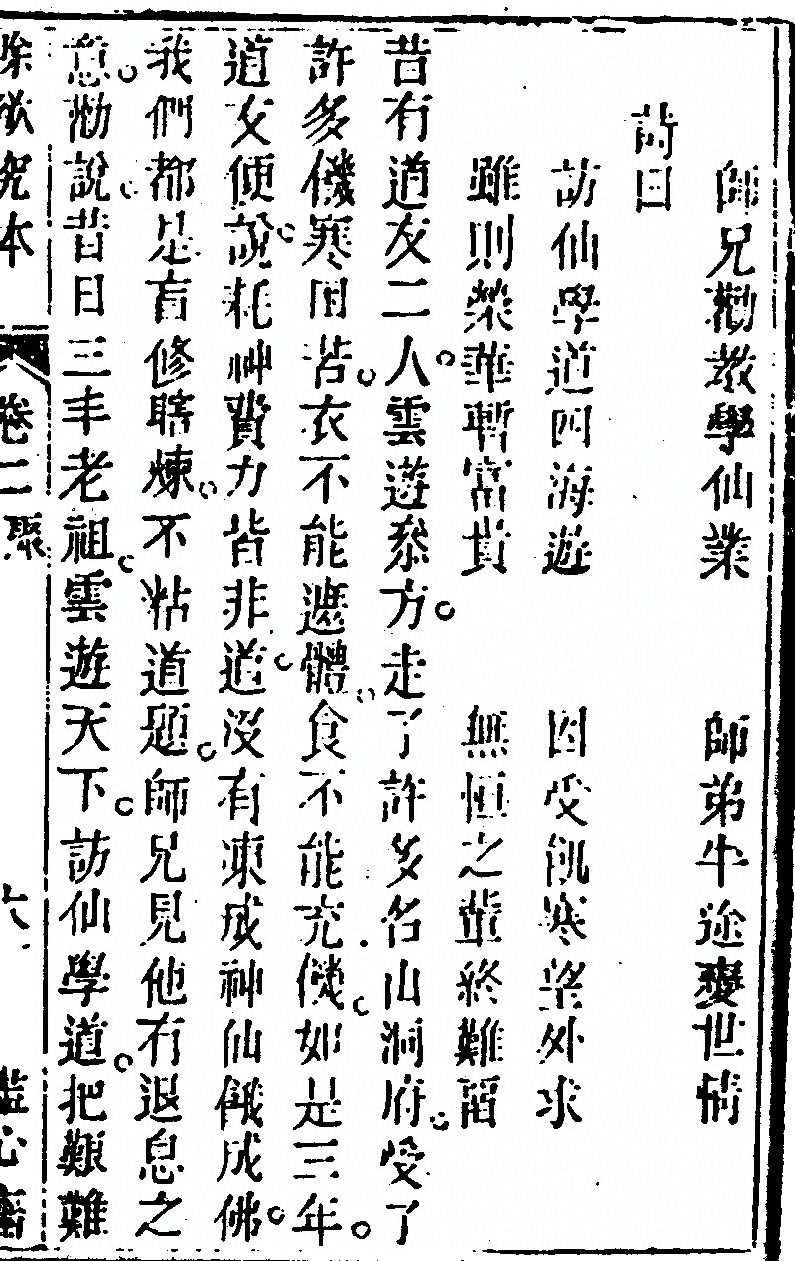 師兄勸教學仙業　師弟半途變世情
詩曰
訪仙學道四海遊　因受飢寒望外求
雖則榮華暫富貴　無恒之輩終難留
昔有道友二人雲遊叅方走了許多名山洞府受了
許多饑寒困苦衣不能遮體食不能充饑如是三年
道友便說耗神費力皆非道沒有凍成神仙餓成佛
我們都是盲修瞎煉不粘道題師兄見他有退息之
意勸說昔日三丰老祖雲遊天下訪仙學道把艱難
卷二 六